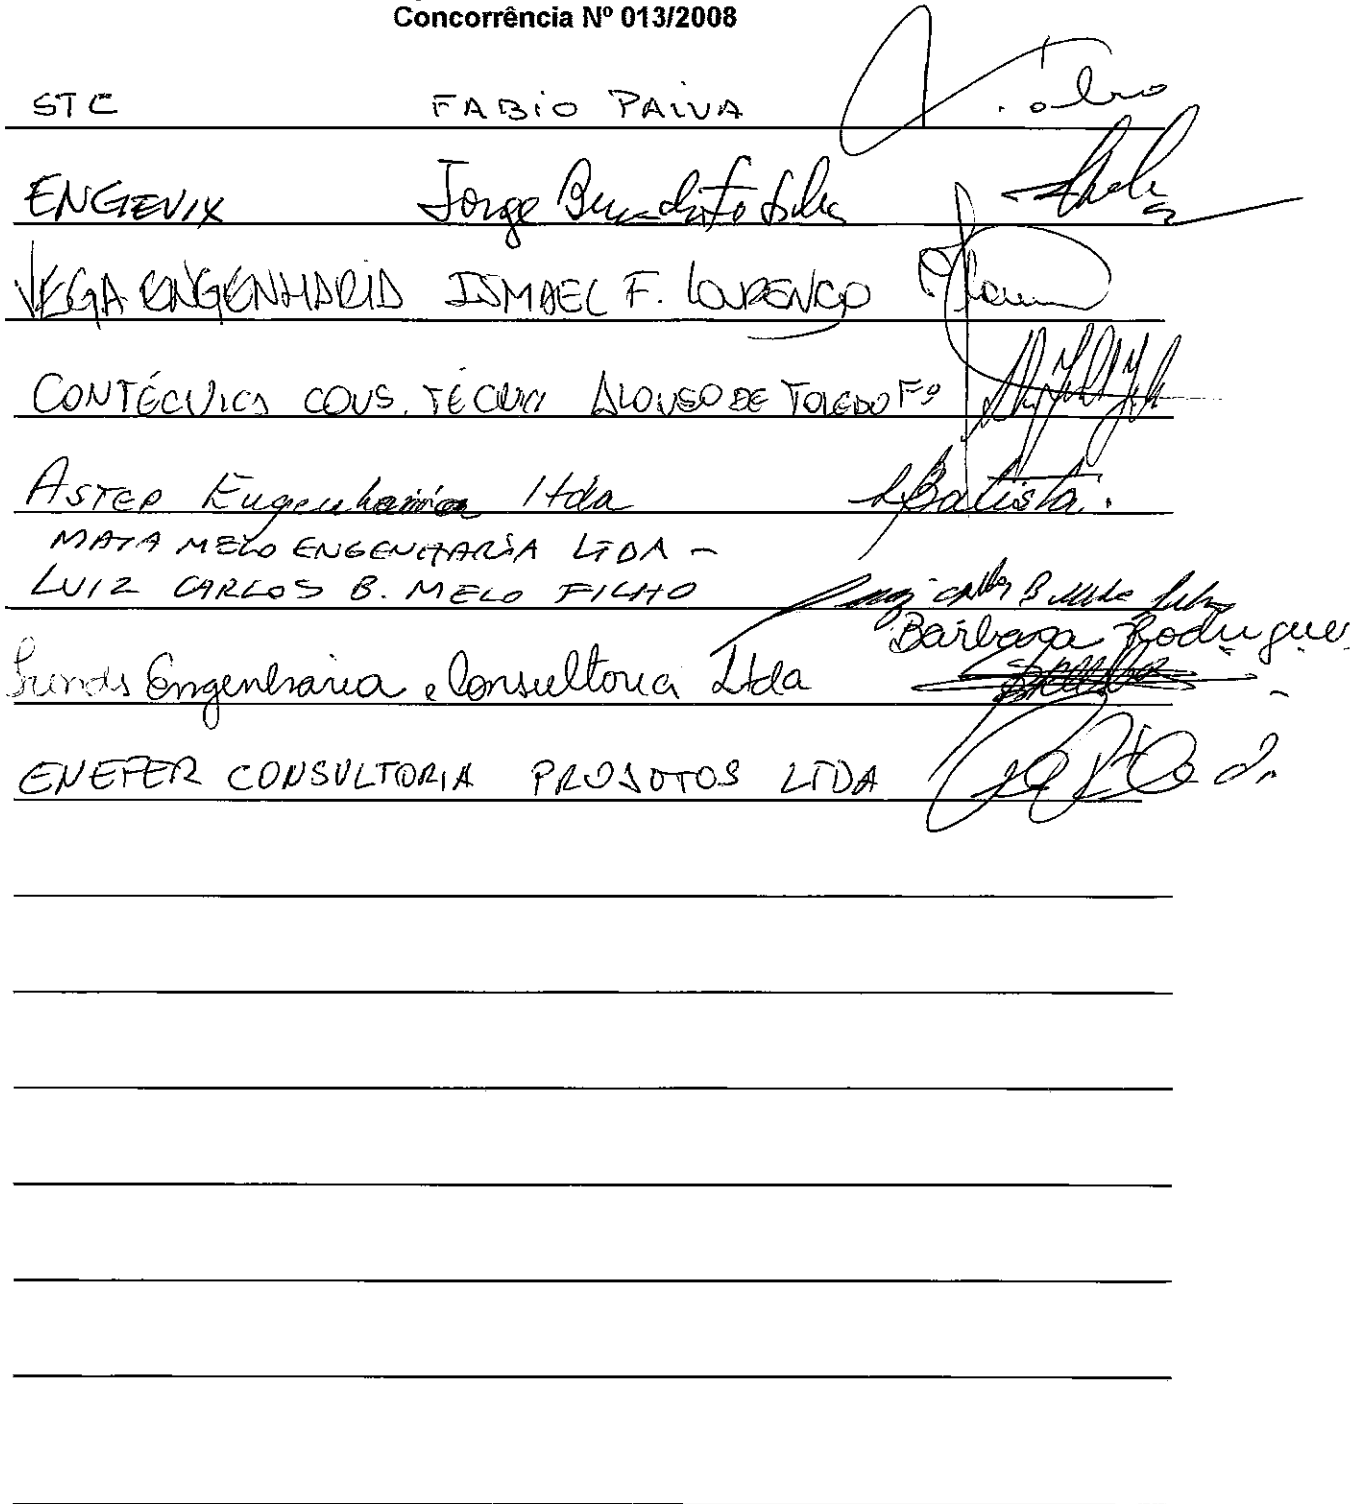 Concorrência Nº 013/2008
STC FABIO PAIVA
ENGEVIX Jorge
VEGA ENGENHARIA ISMAEL F. LOURENÇO
CONTÉCNICA CONS. TÉCNICA ALONSO DE TOLEDO Fº
ASTEP Engenharia ltda Batista.
MATA MELO ENGENHARIA LTDA -
LUIZ CARLOS B. MELO FILHO
Barbara Rodrigues
Engenharia e Consultoria Ltda
ENEFER CONSULTORIA PROJETOS LTDA